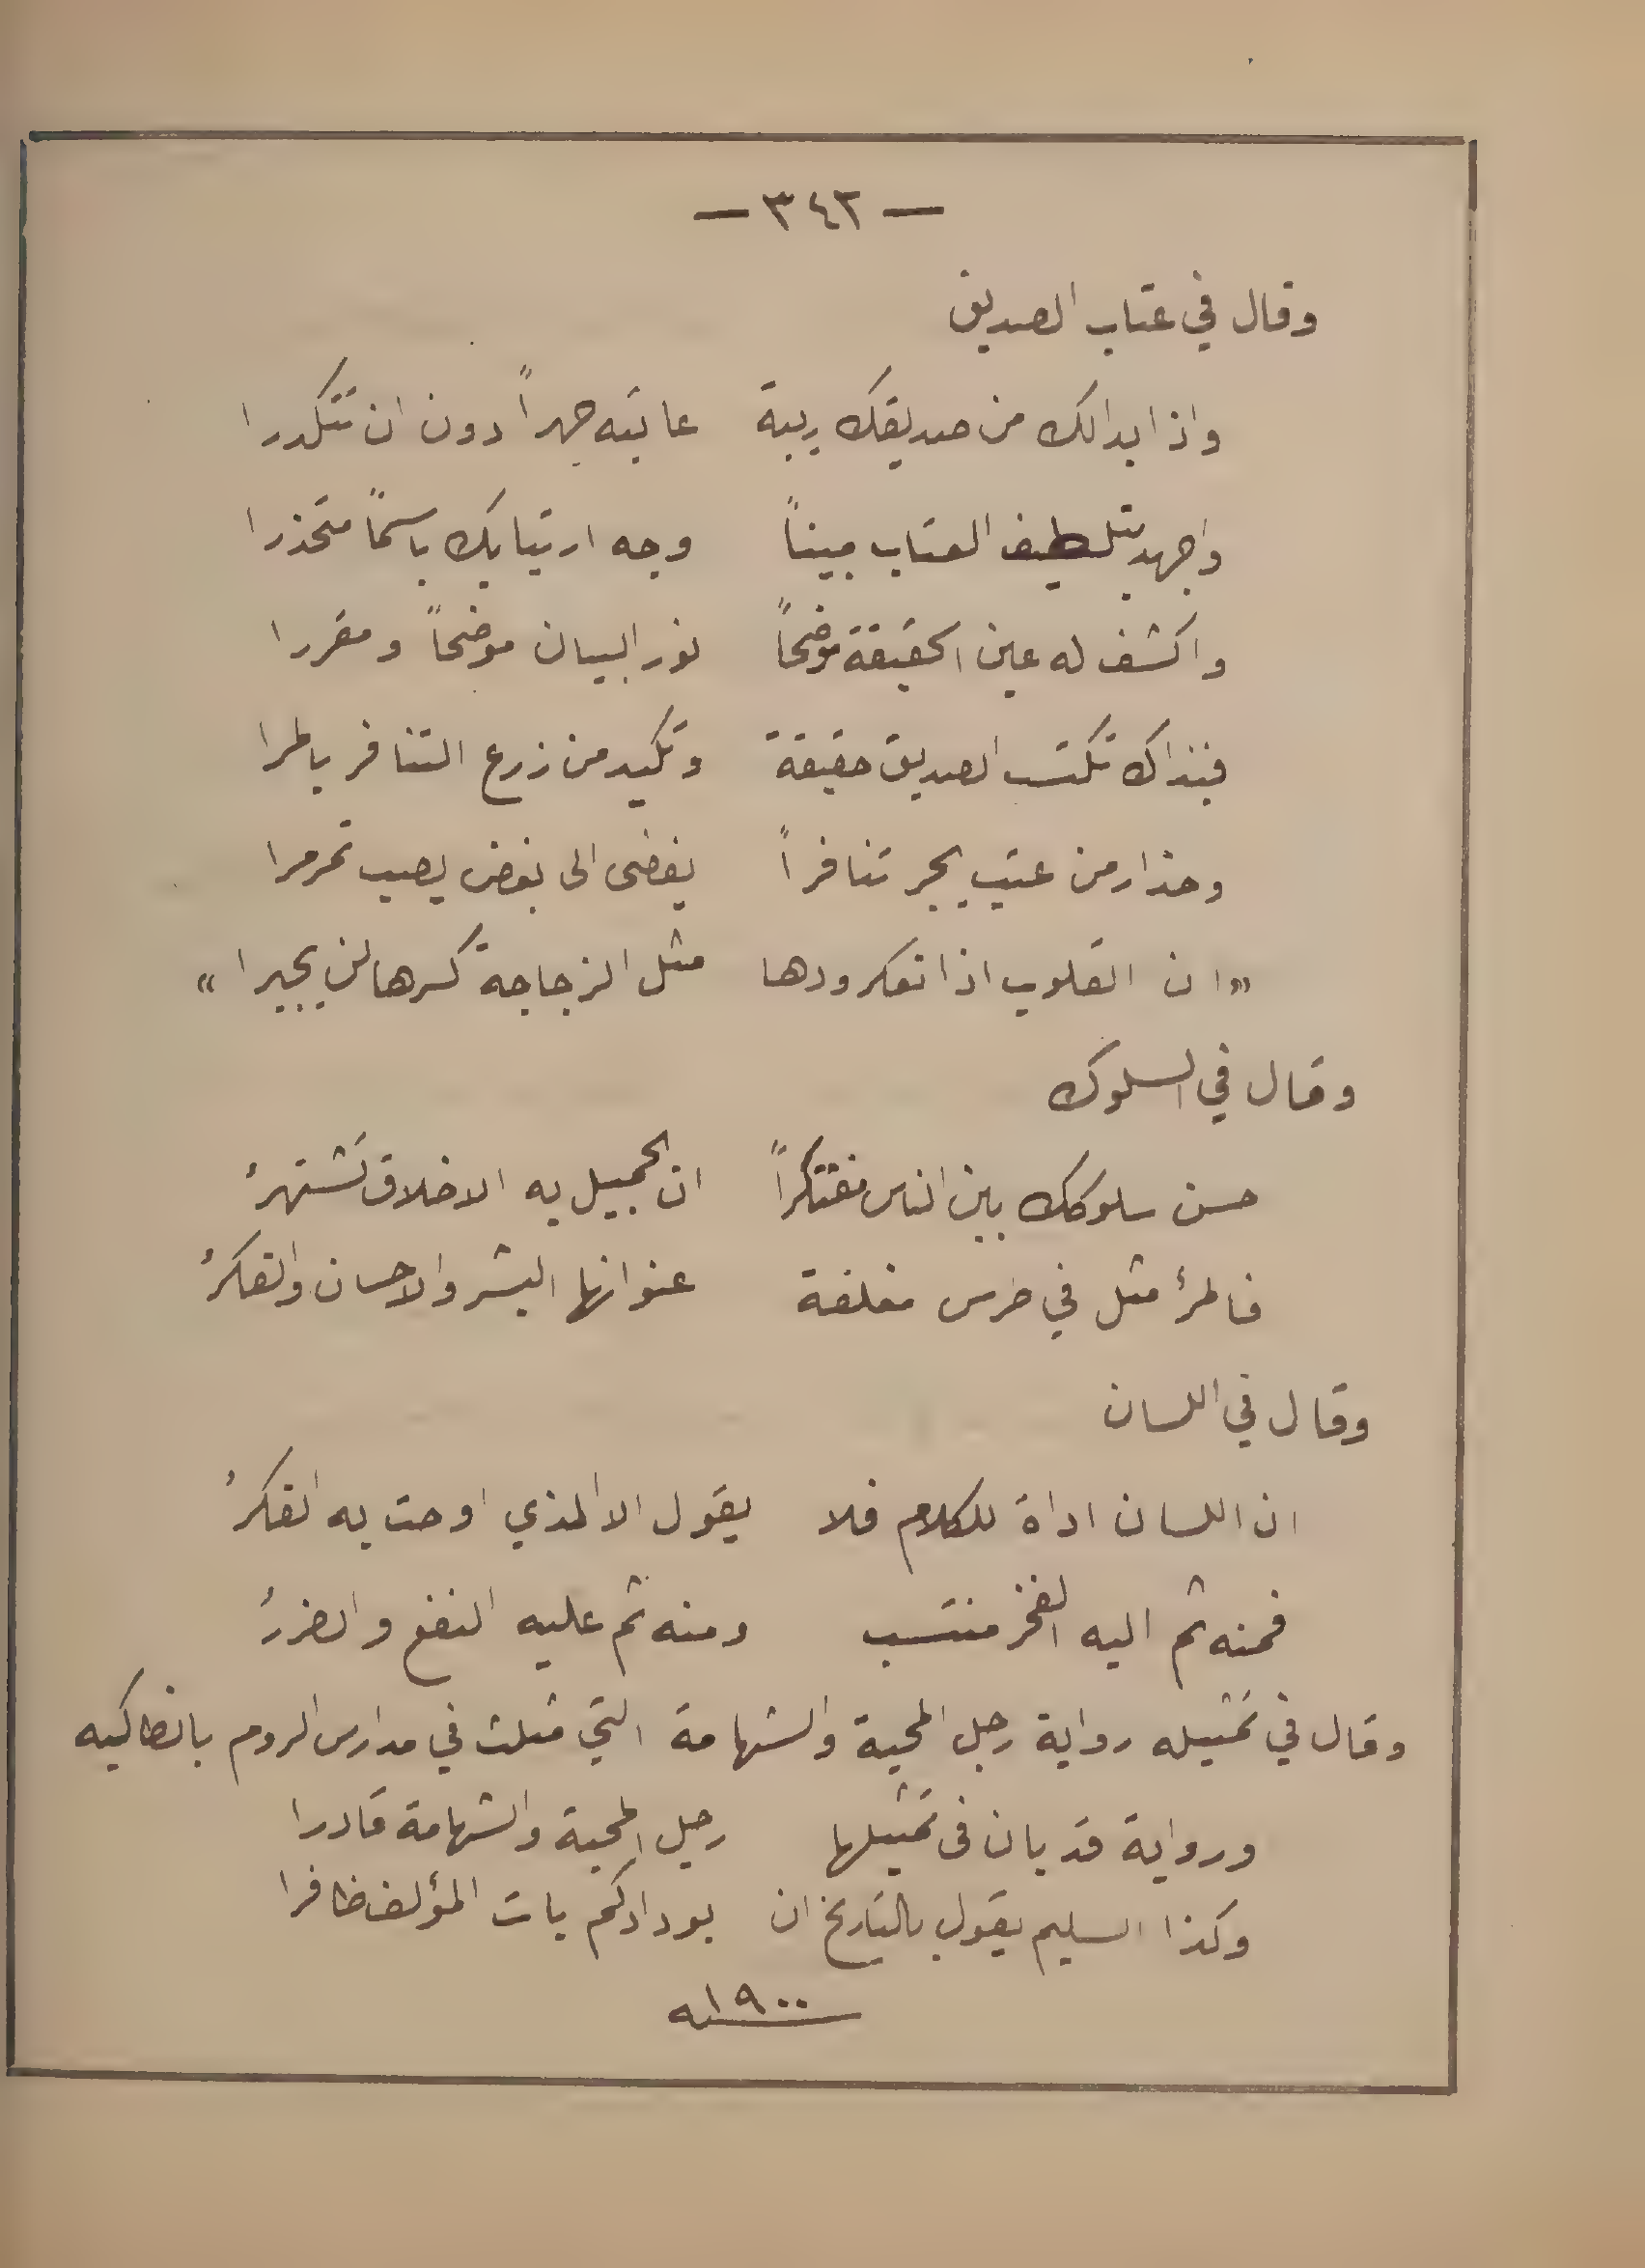 — ٣٤٢ —
وقال في عتاب الصديق
واذا بدا لك من صديقك ريبة عاتبه جهراً دون ان تتكدرا
واجهد بتلطيف العتاب مبيناً وجه ارتيابك باسماً متحذرا
واكشف له عين الحقيقة موضحاً نور البيان موضحاً ومقررا
فبذاك تكتسب الصديق حقيقة وتكيد من زرع التنافر بالمرا
وحذار من عتب يجر تنافراً يفضى الى بغض يصيب تمرمرا
«ان القلوب اذا تعكر ودها مثل الزجاجة كسرها لن يجبرا»
وقال في السلوك
حسن سلوكك بين الناس مفتكراً ان الجميل به الاخلاق تَشتهرُ
فالمرأ مثل في طرس مغلفة عنوانها البشر والاحسان والفكرُ
وقال في اللسان
ان اللسان اداة للكلام فلا يقول الا الذي اوحت به الفكرُ
فمنه ثم اليه الفخر منتسب ومنه ثم عليه النفع والضررُ
وقال في تمثيله رواية رجل المحبة والشهامة التي مثلت في مدارس الروم بانطاكيه
ورواية قد بان فى تمثيلها رجل المحبة والشهامة قادرا
وكذا السليم يقول بالتاريخ ان بودادكم بات المؤلف ظافرا
١٩٠٠ سنه